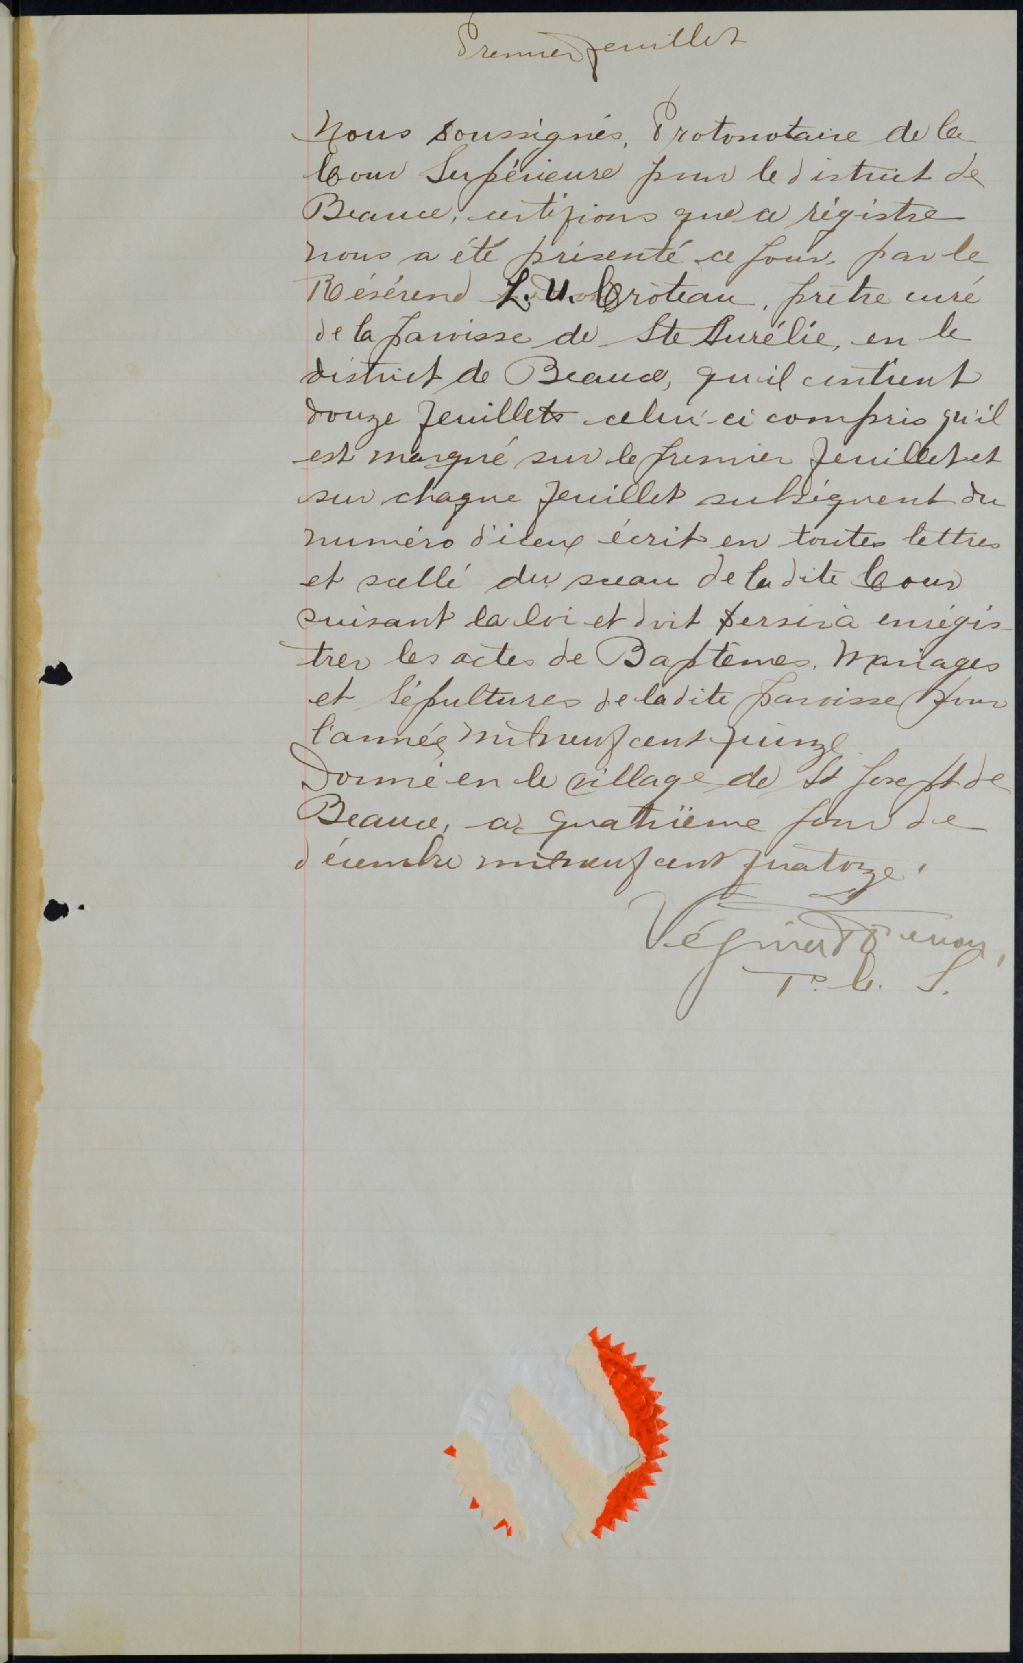 Premier feuillet
Nous soussignés, Protonotaire de la
Cour Supérieure pour le district de
Beauce, certifions que ce régistre
nous a été présenté ce jour, par le
Révérend L. U. Croteau, prêtre curé
de la paroisse de Ste Aurélie, en le
district de Beauce, qu'il contient
douze feuillets celui-ci compris qu'il
est marqué sur le premier feuillet et
sur chaque feuillet subséquent du
numéro d'iceux écrit en toutes lettres
et scellé du sceau de la dite Cour
suivant la loi et doit servir à enrégis-
trer les actes de Baptêmes, Mariages
et Sépultures de la dite paroisse pour
l'année mil neuf cent quinze.
Donné en le village de St Joseph de
Beauce, ce quatrième jour de
décembre mil neuf cent quatorze.
Vézina
P. C. S.